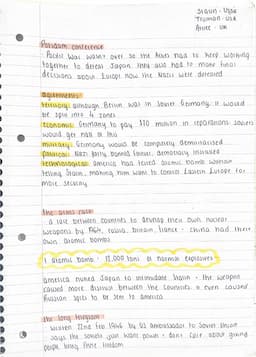 Stalin - USSR
Truman - USA
Atlee - UK
Potsdam conference
Pacific war wasn't over so the allies had to keep working
together to defeat Japan. They also had to make final
decisions about Europe now the Nazis were defeated.
Agreements:
territory: although Berlin was in Soviet Germany, it would
be split into 4 zones
economic: Germany to pay $10 million in reparations Soviets
would get half of this
military: Germany would be completely demilitarised
political: Nazi Party banned forever, democracy initiated
technological: America had tested atomic bomb without
telling Stalin, making him want to control Eastern Europe for
more security
the arms race:
a race between countries to develop their own nuclear
weapons by 1964, Russia, Britain, France + China had their
own atomic bombs
1 atomic bomb = 12,000 tons of normal explosives
America hoped Japan to intimidate Stalin - the weapon
caused more distrust between the countries + even caused
Russian spies to be sent to America
the long telegram
written 22nd Feb 1946 by US ambassador to Soviet Union
says the Soviets just want power + don't care about giving
people their freedom